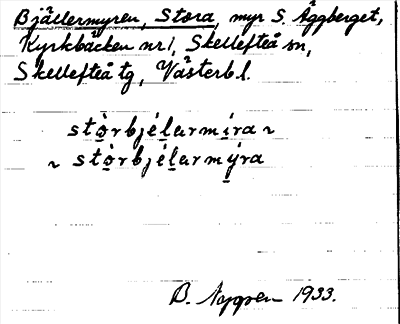 Bjällermyren, Stora, myr S. Äggberget,
Kyrkbäcken nr 1, Skellefteå sn,
Skellefteå tg, Västerb. l.
stò̱rbjéḻarmi̱ra ~
~ stò̱rbjéḻarmý̱ra
B. 1933.